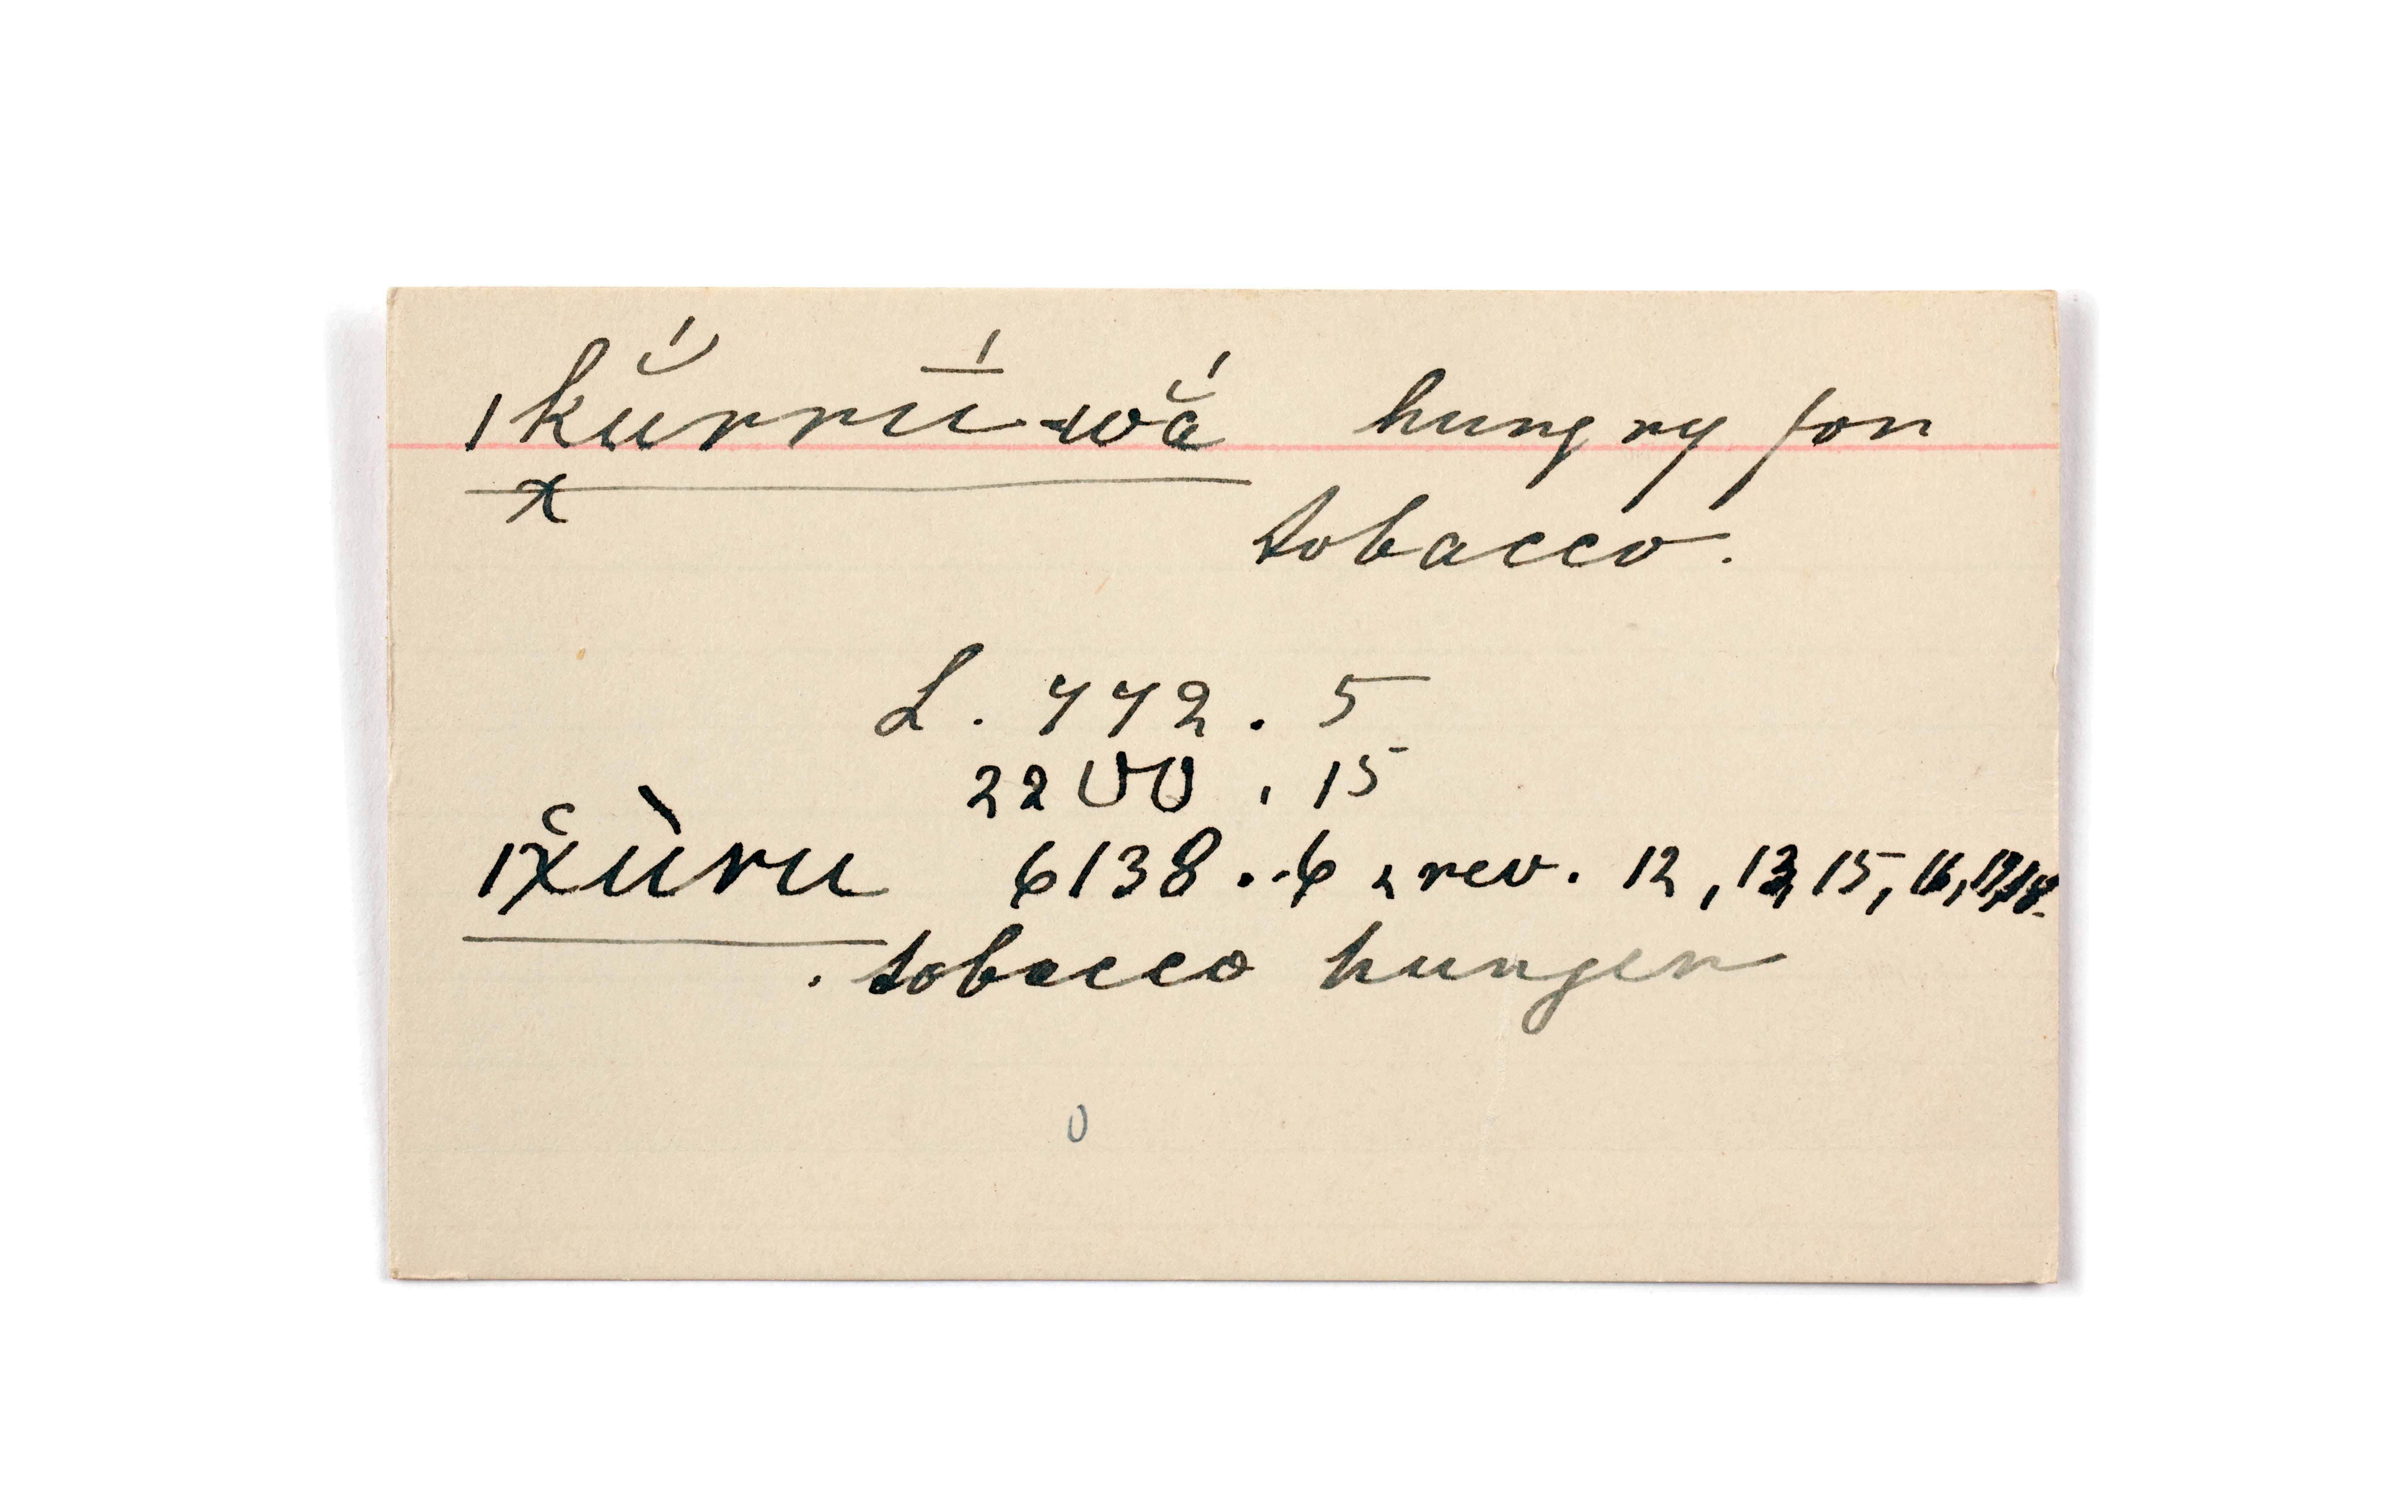 ıkŭ́rrū́-wắ hungry for
x
tobacco.
L. 772. 5
2200. 15
ıx̆ùru 6138.-6 & rev. 12, 13, 15, 16, 17, 18.
. tobacco hunger
0